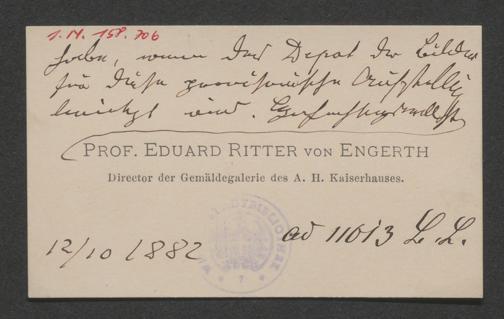 I. N. 158.706
habe, wenn das Depot der Bilder
für diese provisorische Aufstellung
wird.
PROF. EDUARD RITTER VON ENGERTH
Director der Gemäldegalerie des A. H. Kaiserhauses.
12/10 1882
ad 11013 L. L.